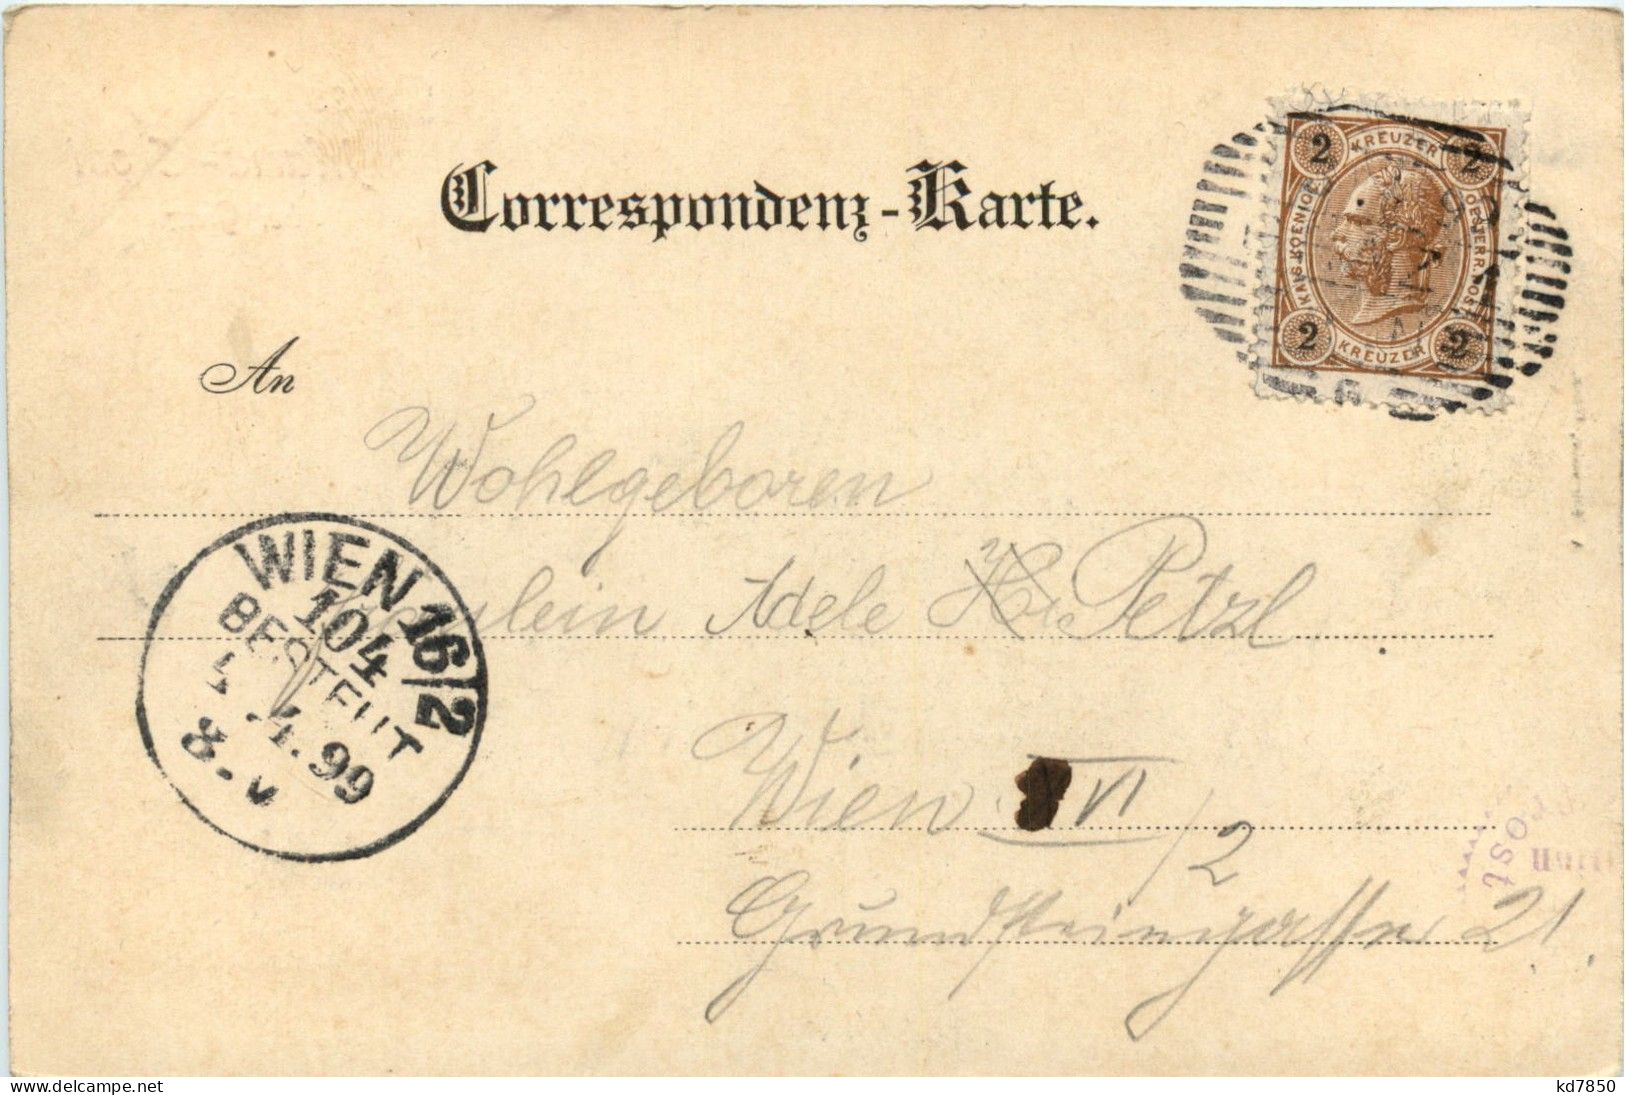 Correspondenz-Karte.
2 KREUZER 2
KAIS. KOENIGL. OESTERR. POST
2 KREUZER 2
An
Wohlgeboren
Fräulein Adele Petzl
WIEN 16/2
104
BESTELLT
4. 99
8. V
Wien XVI
/2
Grundsteingasse 21.
Post
www.delcampe.net
kd7850